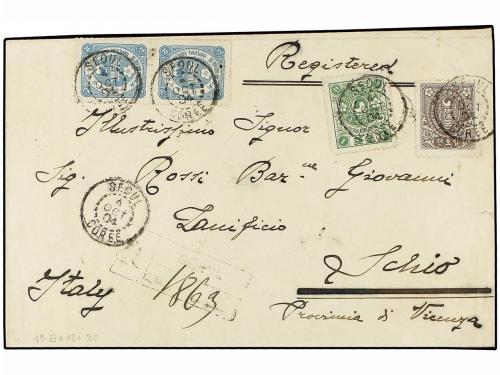 SEOUL
COREE
SEOUL
COREE
Registered
SEOUL
COREE
SEOUL
COREE
Illustrissimo Signor
Sig. Rossi Bar.ne Giovanni
SEOUL
4
OCT
04
COREE
Lanificio
Schio
Italy
1863
Provincia di Vicenza